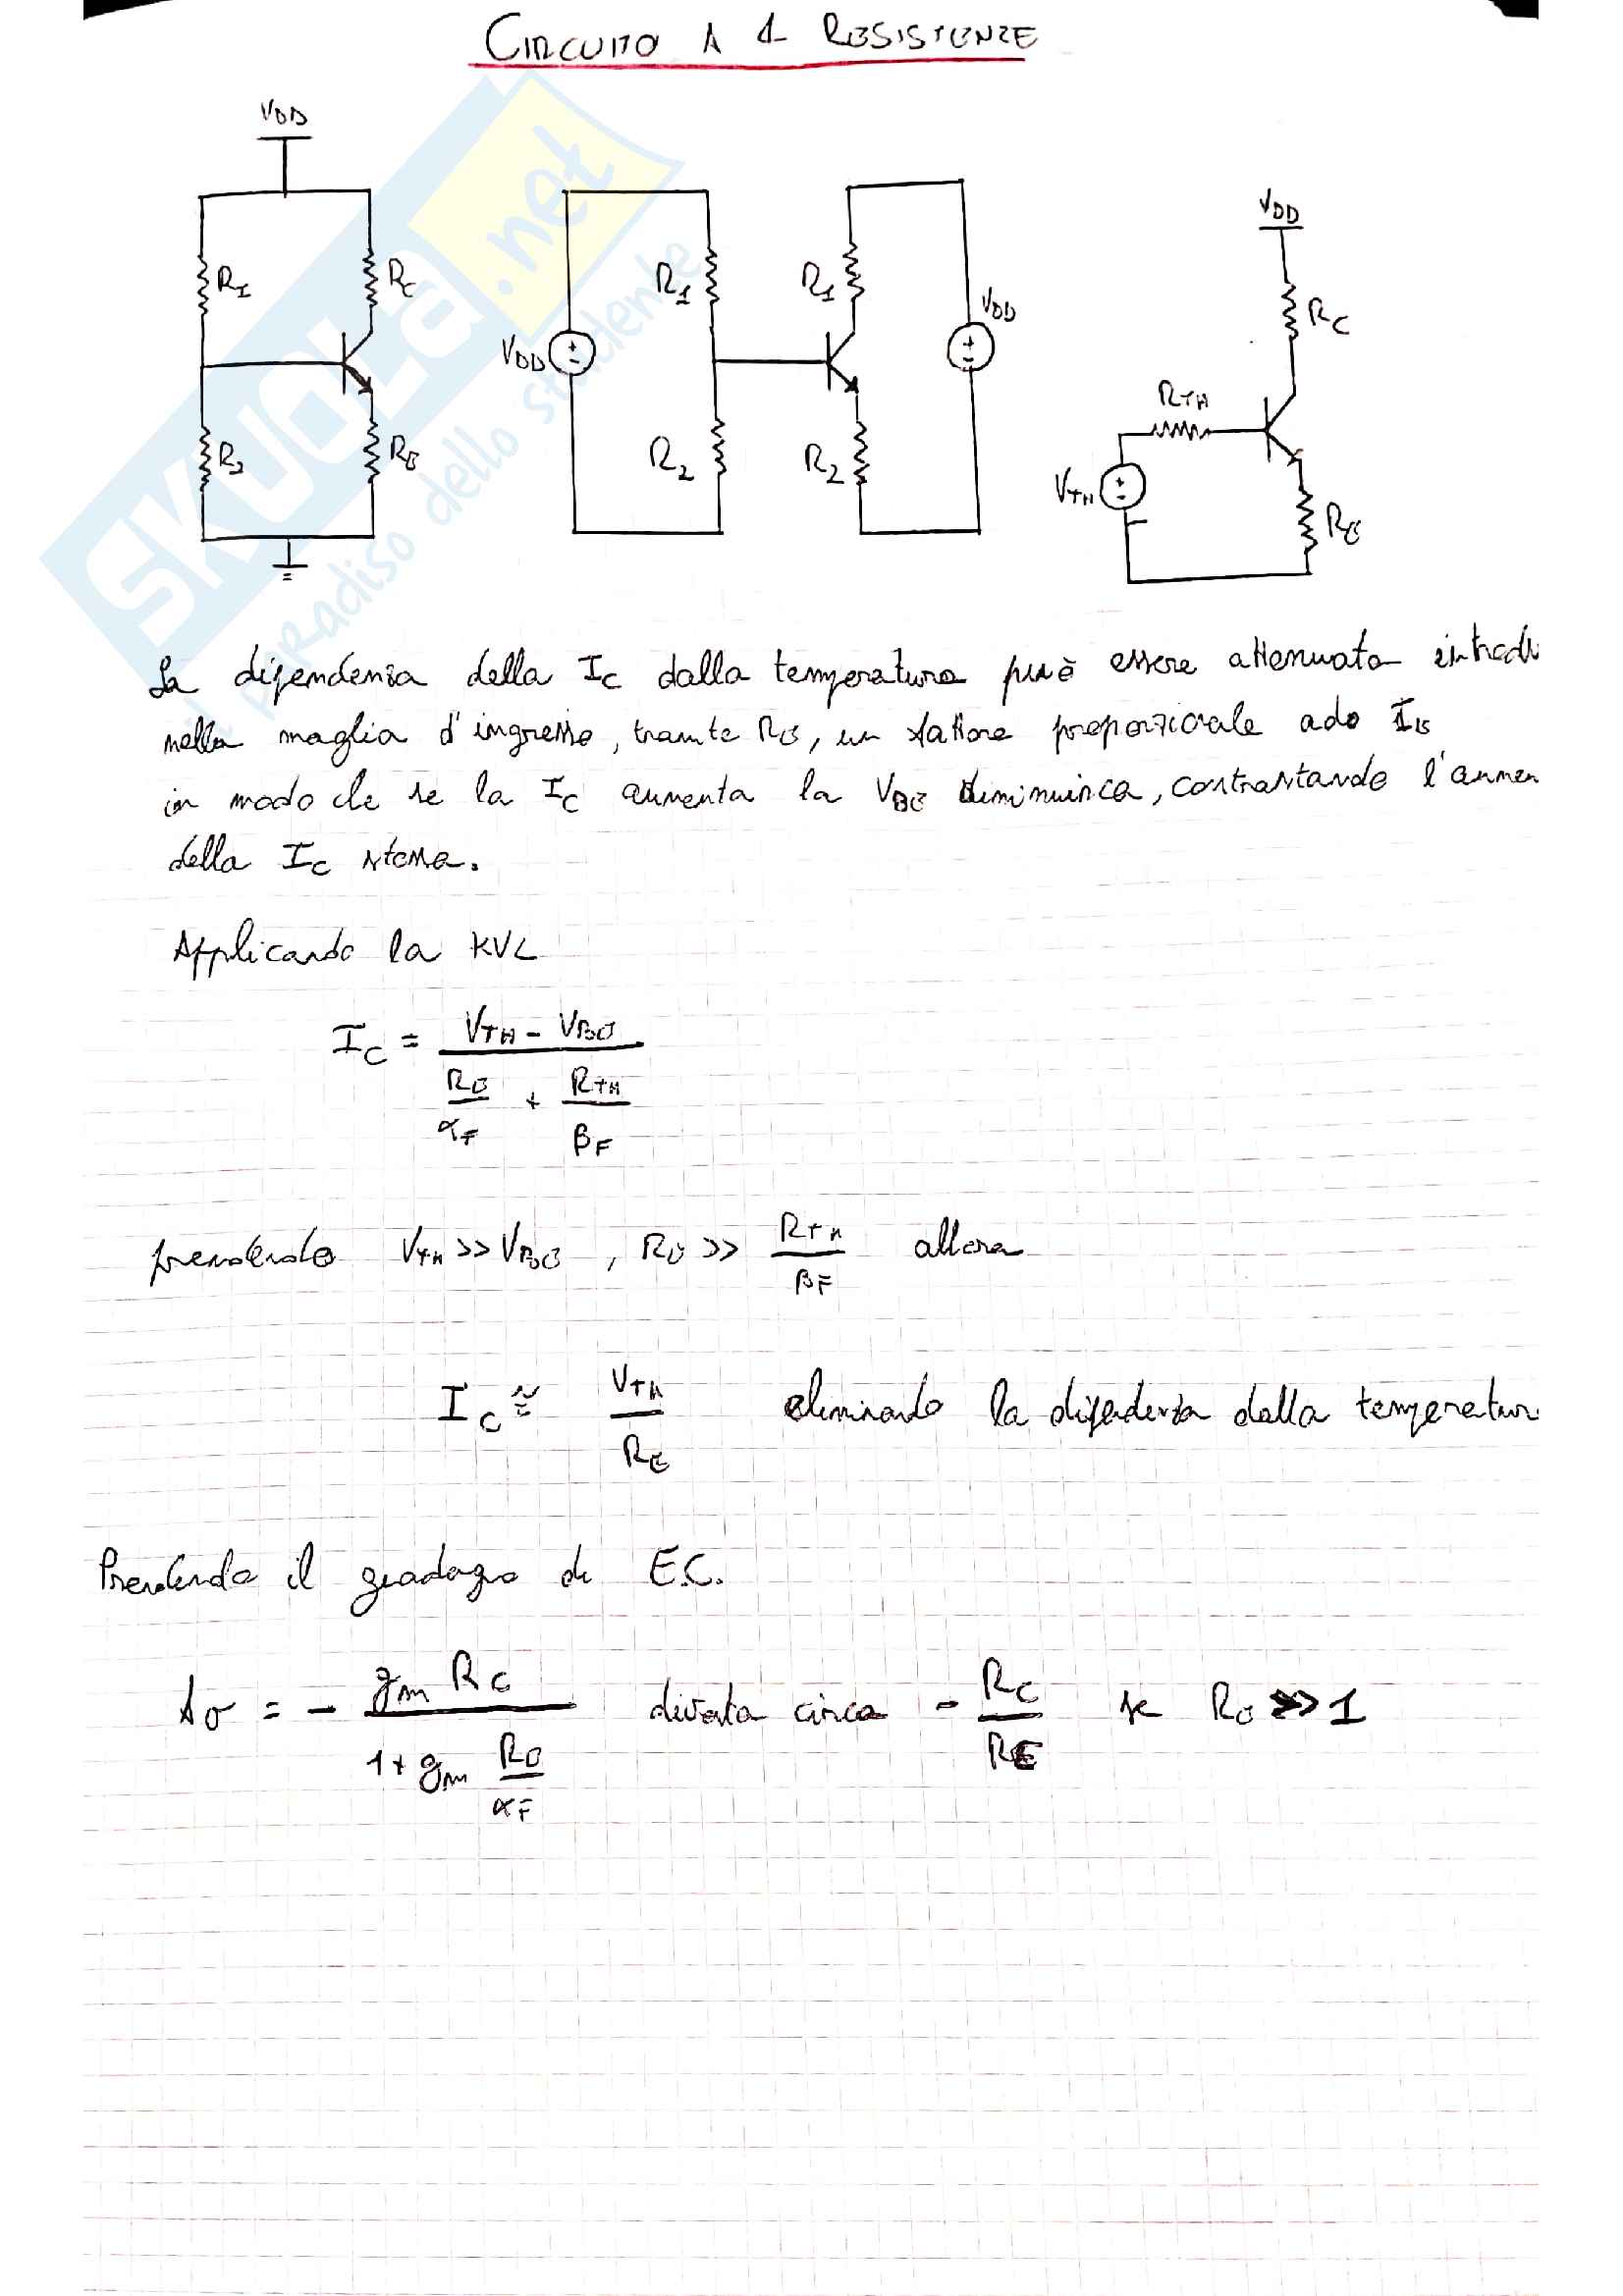 CIRCUITO A 4 RESISTENZE
VDD
R1
RC
R2
RE
VDD
R1
R2
R1
R2
VDD
VDD
RC
RTH
VTH
RE
SKUOLA.net
il paradiso dello studente
La dipendenza della IC dalla temperatura può essere attenuata introdu
nella maglia d'ingresso, tramite RE, un fattore proporzionale ado IE
in modo che se la IC aumenta la VBE diminuisca, contrastando l'aumen
della IC stessa.
Applicando la KVL
IC = (VTH - VBE) / (RE/αF + RTH/βF)
prendendo VTH >> VBE , RE >> RTH/βF allora
IC ≅ VTH/RE eliminando la dipendenza dalla temperatur
Prendendo il guadagno di E.C.
Av = - gm RC / (1 + gm RE/αF) diventa circa - RC/RE se RE >> 1